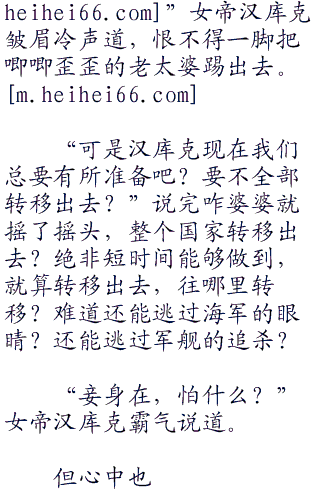 heihei66.com]”女帝汉库克
皱眉冷声道，恨不得一脚把
唧唧歪歪的老太婆踢出去。
[m.heihei66.com]
“可是汉库克现在我们
总要有所准备吧？要不全部
转移出去？”说完咋婆婆就
摇了摇头，整个国家转移出
去？绝非短时间能够做到，
就算转移出去，往哪里转
移？难道还能逃过海军的眼
睛？还能逃过军舰的追杀？
“妾身在，怕什么？”
女帝汉库克霸气说道。
但心中也